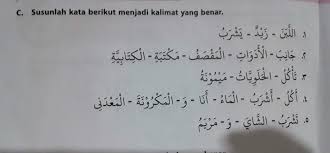 C. Susunlah kata berikut menjadi kalimat yang benar.
١. اللَّبَنَ - زَيْدٌ - يَشْرَبُ
٢. جَانِبَ - الْأَدَوَاتِ - الْمَقْصَفُ - مَكْتَبَةٌ - الْكِتَابِيَّةِ
٣. تَأْكُلُ - الْحَلَوِيَّاتِ - مَيْمُونَةُ
٤. آكُلُ - أَشْرَبُ - الْمَاءَ - أَنَا - وَ - الْمَكْرُونَةَ - الْمَعْدَنِيَّ
٥. تَشْرَبُ - الشَّايَ - وَ - مَرْيَمُ